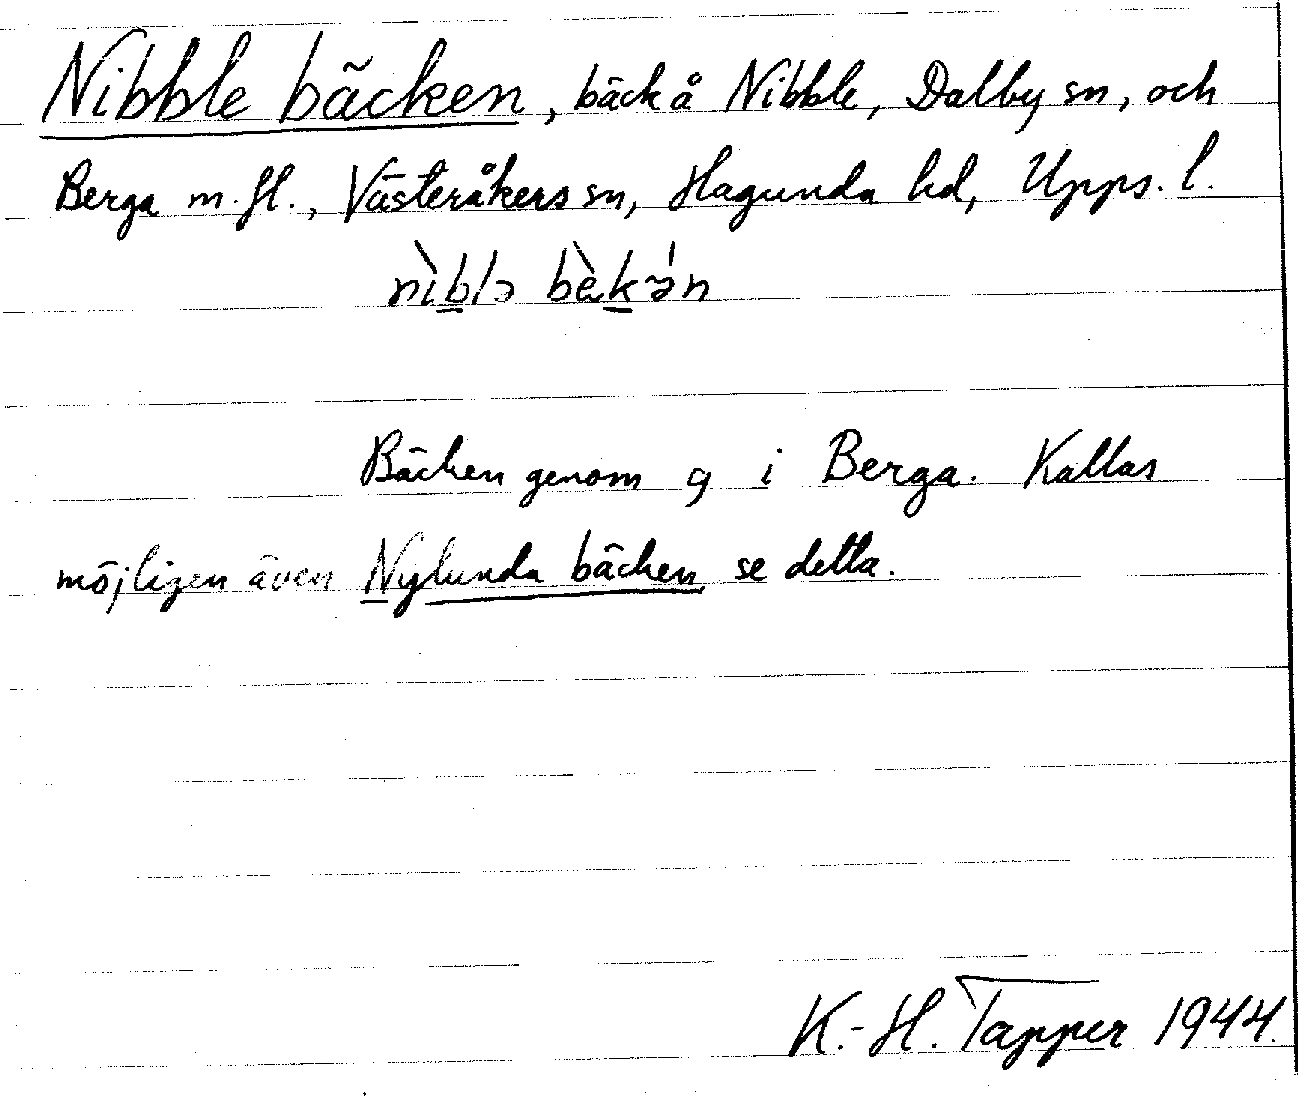 Nibble bäcken, bäck å Nibble, Dalby sn, och
Berga m. fl., Västeråkers sn, Hagunda hd, Upps. l.
nìblə bèkən
Bäcken genom 9 i Berga. Kallas
möjligen även Nylunda bäcken se detta.
K.-H. Tapper 1944.